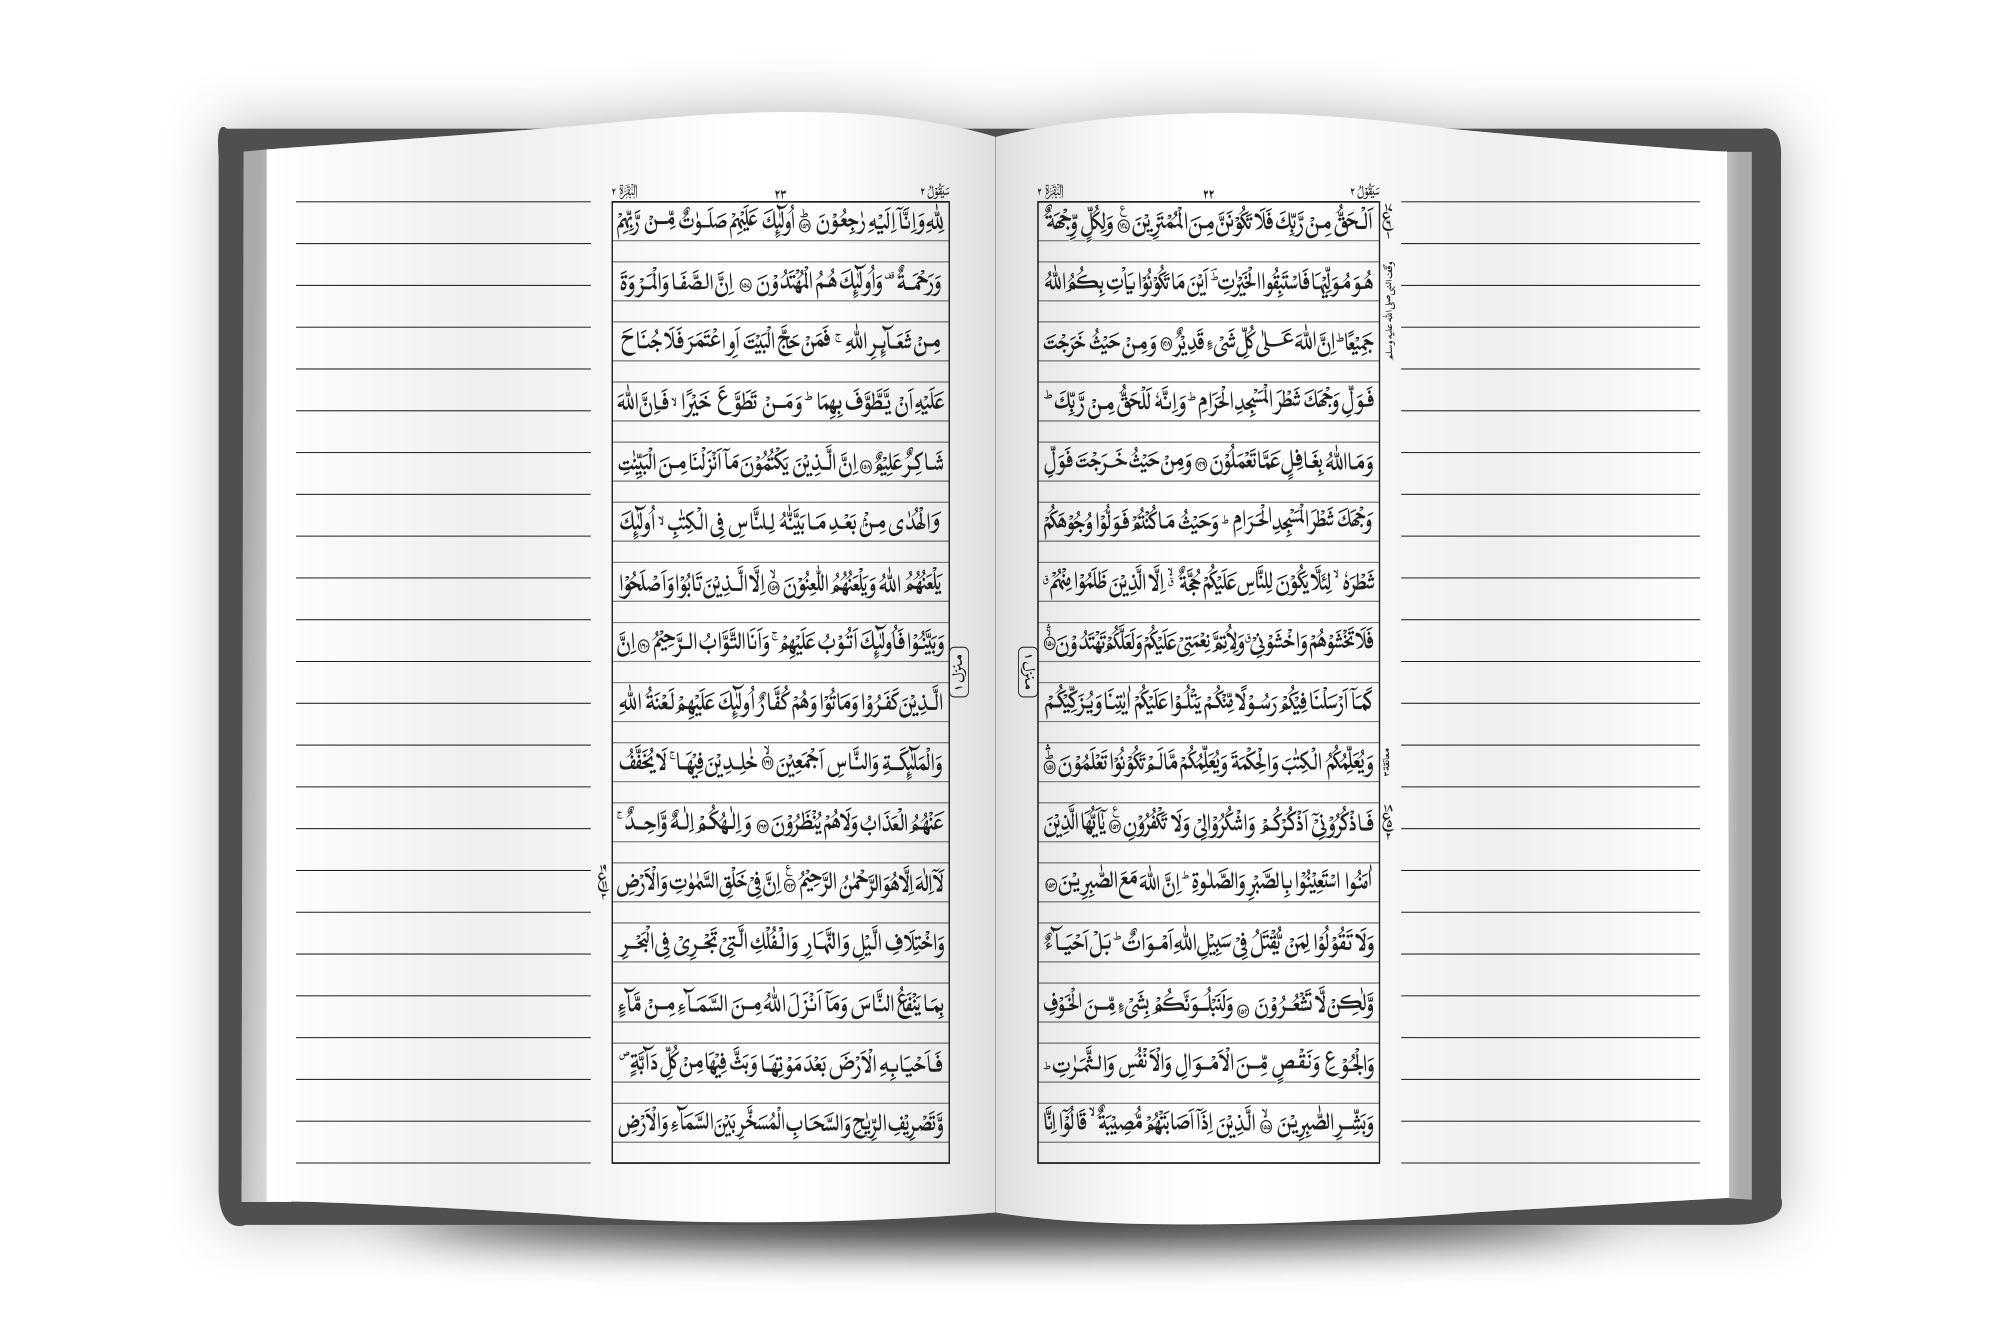 سَيَقُوْلُ ٢
٢٢
الْبَقَرَة ٢
اَلْحَقُّ مِنْ رَّبِّكَ فَلَا تَكُوْنَنَّ مِنَ الْمُمْتَرِيْنَ ۝١٤٧ؑ وَلِكُلٍّ وِّجْهَةٌ
هُوَ مُوَلِّيْهَا فَاسْتَبِقُوا الْخَيْرٰتِ ؕ اَيْنَ مَا تَكُوْنُوْا يَاْتِ بِكُمُ اللّٰهُ
جَمِيْعًا ؕ اِنَّ اللّٰهَ عَلٰى كُلِّ شَىْءٍ قَدِيْرٌ ۝١٤٨ وَمِنْ حَيْثُ خَرَجْتَ
فَوَلِّ وَجْهَكَ شَطْرَ الْمَسْجِدِ الْحَرَامِ ؕ وَاِنَّهٗ لَلْحَقُّ مِنْ رَّبِّكَ ؕ
وَمَا اللّٰهُ بِغَافِلٍ عَمَّا تَعْمَلُوْنَ ۝١٤٩ وَمِنْ حَيْثُ خَرَجْتَ فَوَلِّ
وَجْهَكَ شَطْرَ الْمَسْجِدِ الْحَرَامِ ؕ وَحَيْثُ مَا كُنْتُمْ فَوَلُّوْا وُجُوْهَكُمْ
شَطْرَهٗ ۙ لِئَلَّا يَكُوْنَ لِلنَّاسِ عَلَيْكُمْ حُجَّةٌ ۙ اِلَّا الَّذِيْنَ ظَلَمُوْا مِنْهُمْ ۗ
فَلَا تَخْشَوْهُمْ وَاخْشَوْنِىْ ۗ وَلِاُتِمَّ نِعْمَتِىْ عَلَيْكُمْ وَلَعَلَّكُمْ تَهْتَدُوْنَ ۝١٥٠ۙ
كَمَآ اَرْسَلْنَا فِيْكُمْ رَسُوْلًا مِّنْكُمْ يَتْلُوْا عَلَيْكُمْ اٰيٰتِنَا وَيُزَكِّيْكُمْ
وَيُعَلِّمُكُمُ الْكِتٰبَ وَالْحِكْمَةَ وَيُعَلِّمُكُمْ مَّا لَمْ تَكُوْنُوْا تَعْلَمُوْنَ ۝١٥١ؕ
فَاذْكُرُوْنِىْٓ اَذْكُرْكُمْ وَاشْكُرُوْا لِىْ وَلَا تَكْفُرُوْنِ ۝١٥٢ؑ يٰٓاَيُّهَا الَّذِيْنَ
اٰمَنُوا اسْتَعِيْنُوْا بِالصَّبْرِ وَالصَّلٰوةِ ؕ اِنَّ اللّٰهَ مَعَ الصّٰبِرِيْنَ ۝١٥٣
وَلَا تَقُوْلُوْا لِمَنْ يُّقْتَلُ فِىْ سَبِيْلِ اللّٰهِ اَمْوَاتٌ ؕ بَلْ اَحْيَآءٌ
وَّلٰكِنْ لَّا تَشْعُرُوْنَ ۝١٥٤ وَلَنَبْلُوَنَّكُمْ بِشَىْءٍ مِّنَ الْخَوْفِ
وَالْجُوْعِ وَنَقْصٍ مِّنَ الْاَمْوَالِ وَالْاَنْفُسِ وَالثَّمَرٰتِ ؕ
وَبَشِّرِ الصّٰبِرِيْنَ ۝١٥٥ۙ الَّذِيْنَ اِذَآ اَصَابَتْهُمْ مُّصِيْبَةٌ ۙ قَالُوْٓا اِنَّا
وقف النبي صلى الله عليه وسلم
معانقة ٢
منزل ١
سَيَقُوْلُ ٢
٢٣
الْبَقَرَة ٢
لِلّٰهِ وَاِنَّآ اِلَيْهِ رٰجِعُوْنَ ۝١٥٦ؕ اُولٰٓئِكَ عَلَيْهِمْ صَلَوٰتٌ مِّنْ رَّبِّهِمْ
وَرَحْمَةٌ ۗ وَاُولٰٓئِكَ هُمُ الْمُهْتَدُوْنَ ۝١٥٧ اِنَّ الصَّفَا وَالْمَرْوَةَ
مِنْ شَعَآئِرِ اللّٰهِ ۚ فَمَنْ حَجَّ الْبَيْتَ اَوِ اعْتَمَرَ فَلَا جُنَاحَ
عَلَيْهِ اَنْ يَّطَّوَّفَ بِهِمَا ؕ وَمَنْ تَطَوَّعَ خَيْرًا ۙ فَاِنَّ اللّٰهَ
شَاكِرٌ عَلِيْمٌ ۝١٥٨ اِنَّ الَّذِيْنَ يَكْتُمُوْنَ مَآ اَنْزَلْنَا مِنَ الْبَيِّنٰتِ
وَالْهُدٰى مِنْۢ بَعْدِ مَا بَيَّنّٰهُ لِلنَّاسِ فِى الْكِتٰبِ ۙ اُولٰٓئِكَ
يَلْعَنُهُمُ اللّٰهُ وَيَلْعَنُهُمُ اللّٰعِنُوْنَ ۝١٥٩ۙ اِلَّا الَّذِيْنَ تَابُوْا وَاَصْلَحُوْا
وَبَيَّنُوْا فَاُولٰٓئِكَ اَتُوْبُ عَلَيْهِمْ ۚ وَاَنَا التَّوَّابُ الرَّحِيْمُ ۝١٦٠ اِنَّ
الَّذِيْنَ كَفَرُوْا وَمَاتُوْا وَهُمْ كُفَّارٌ اُولٰٓئِكَ عَلَيْهِمْ لَعْنَةُ اللّٰهِ
وَالْمَلٰٓئِكَةِ وَالنَّاسِ اَجْمَعِيْنَ ۝١٦١ۙ خٰلِدِيْنَ فِيْهَا ۚ لَا يُخَفَّفُ
عَنْهُمُ الْعَذَابُ وَلَا هُمْ يُنْظَرُوْنَ ۝١٦٢ وَاِلٰهُكُمْ اِلٰهٌ وَّاحِدٌ ۚ
لَآ اِلٰهَ اِلَّا هُوَ الرَّحْمٰنُ الرَّحِيْمُ ۝١٦٣ؑ اِنَّ فِىْ خَلْقِ السَّمٰوٰتِ وَالْاَرْضِ
وَاخْتِلَافِ الَّيْلِ وَالنَّهَارِ وَالْفُلْكِ الَّتِىْ تَجْرِىْ فِى الْبَحْرِ
بِمَا يَنْفَعُ النَّاسَ وَمَآ اَنْزَلَ اللّٰهُ مِنَ السَّمَآءِ مِنْ مَّآءٍ
فَاَحْيَا بِهِ الْاَرْضَ بَعْدَ مَوْتِهَا وَبَثَّ فِيْهَا مِنْ كُلِّ دَآبَّةٍ ۪
وَّتَصْرِيْفِ الرِّيٰحِ وَالسَّحَابِ الْمُسَخَّرِ بَيْنَ السَّمَآءِ وَالْاَرْضِ
منزل ١